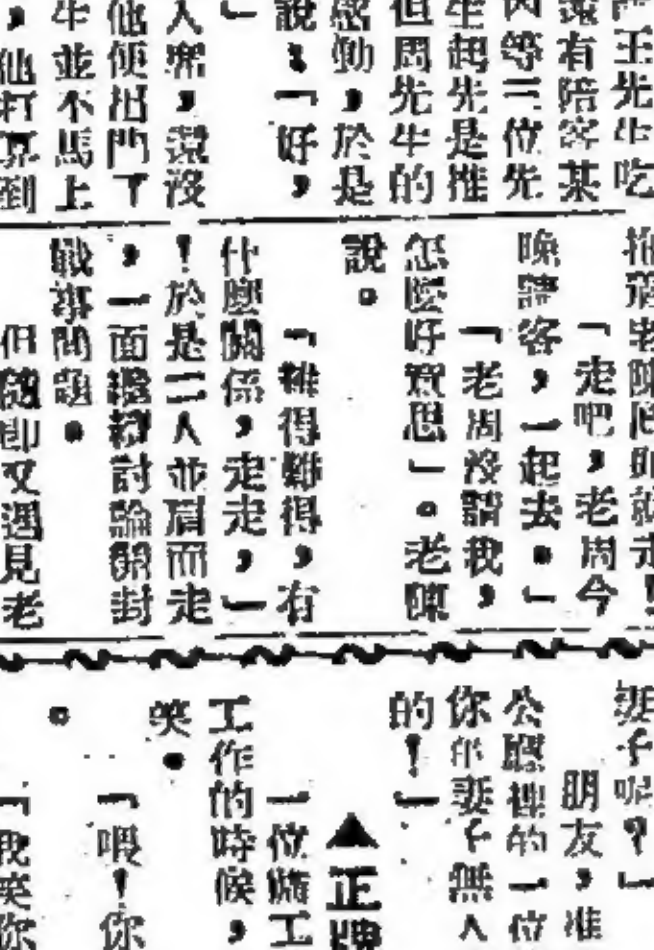 王先生吃
有陪客某
等三位先
生起先是推
但周先生的
感動，於是
說：「好，
」
入席，還沒
他便出門了
生並不馬上
，他打算到
晚請客，一起去。」
「走吧，老周今
「老周沒請我，
怎麼好意思」。老陳
說。
「難得難得，有
什麼關係，走走，」
！於是二人並肩而走
，一面繼續討論開封
戰事問題。
但隨即又遇見老
妻子呢？」
朋友，准
公廳裡的一位
你的妻子無人
的！」
▲正牌
一位職工
工作的時候，
笑。
「喂！你
。
「我笑你